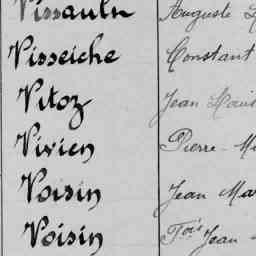 Vissault Auguste
Visseiche Constant
Vitoz Jean Louis
Vivien Pierre-M
Voisin Jean Ma
Voisin Fois Jean